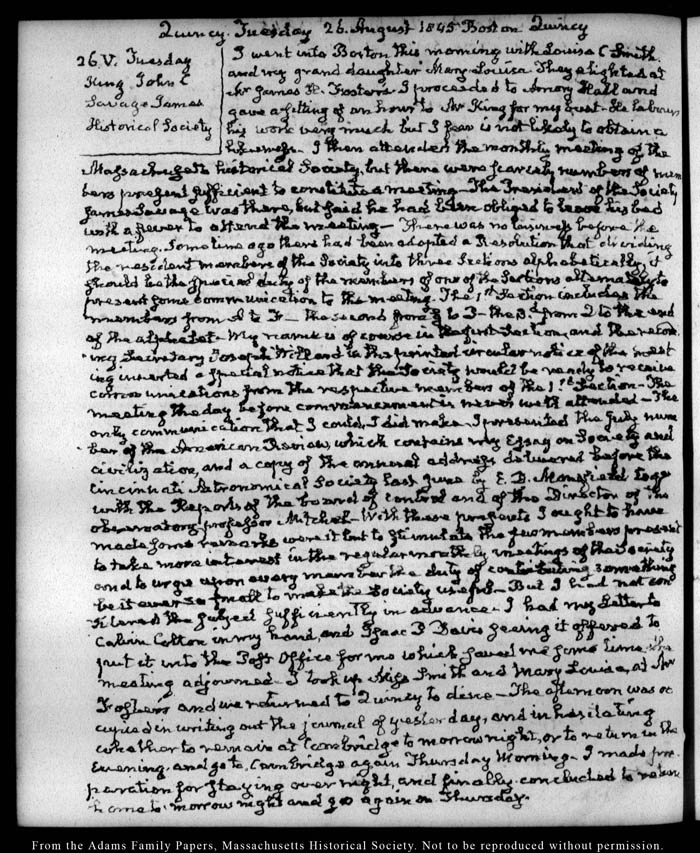 Quincy. Tuesday 26. August 1845 Boston Quincy
26 V. Tuesday
King John C
Savage James
Historical Society
I went into Boston this morning with Louisa C Smith
and my grand daughter Mary Louisa They alighted at
Mr James H. Fosters. I proceeded to Amory Hall and
gave a sitting of an hour to Mr King for my bust. He labours
his work very much but I fear is not likely to obtain a
likeness. I then attended the monthly meeting of the
Massachusetts historical Society, but there were scarcely numbers of mem
bers present sufficient to constitute a meeting. The President of the Society
James Savage was there, but said he had been obliged to leave his bed
with a fever to attend the meeting — There was no business before the
meeting. Some time ago there had been adopted a Resolution that dividing
the resident members of the Society into three Sections alphabetically, it
should be the special duty of the members of one of the Sections alternately to
present some communication to the meeting. The 1st Section includes the
members from A to F — the second from G to — the 3d from to the end
of the alphabet — My name is of course in the first Section, and the recor
ing Secretary Joseph Willard in the printed circular notice of the meet
ing inserted a special notice that the Society would be ready to receive
communications from the respective members of the 1st Section — The
meeting the day before commencement is never well attended — The
only communication that I could, I did make. I presented the July num
ber of the American Review, which contains my Essay on Society and
civilization, and a copy of the annual address delivered before the
Cincinnati Astronomical Society last June by E. D. Mansfield toge
with the Reports of the board of control and of the Director of the
observatory professor Mitchel — With these presents I ought to have
made some remarks were it but to stimulate the few members present
to take more interest in the regular monthly meetings of the Society
and to urge upon every member the duty of contributing something
be it ever so small to make the Society useful — But I had not con
sidered the subject sufficiently in advance — I had my Letter to
Calvin Colton in my hand, and Isaac P Davis seeing it offered to
put it into the Post Office for me which saved me some time the
meeting adjourned — I took up Miss Smith and Mary Louisa, at Mr
Fosters and we returned to Quincy to dine — The afternoon was oc
cupied in writing out the journal of yesterday, and in hesitating
whether to remain at Cambridge to morrow night, or to return in the
Evening and go to Cambridge again Thursday Morning. I made pre
paration for staying over night, and finally concluded to return
home to morrow night and go again on Thursday.
From the Adams Family Papers, Massachusetts Historical Society. Not to be reproduced without permission.